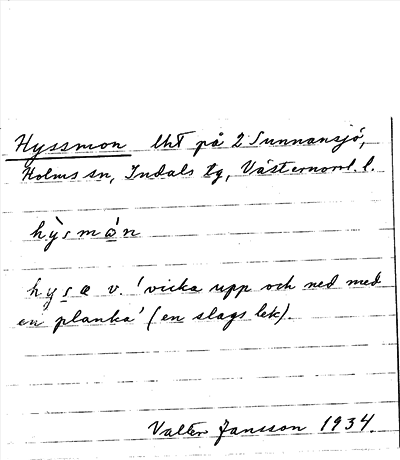 Hyssmon Uht på 2 Sunnansjö,
Holms sn, Indals tg, Västernorrl. l.
hỳsmȯ́n
hysa v. 'vicka upp och ned med
en planka' (en slags lek).
Valter Jansson 1934.